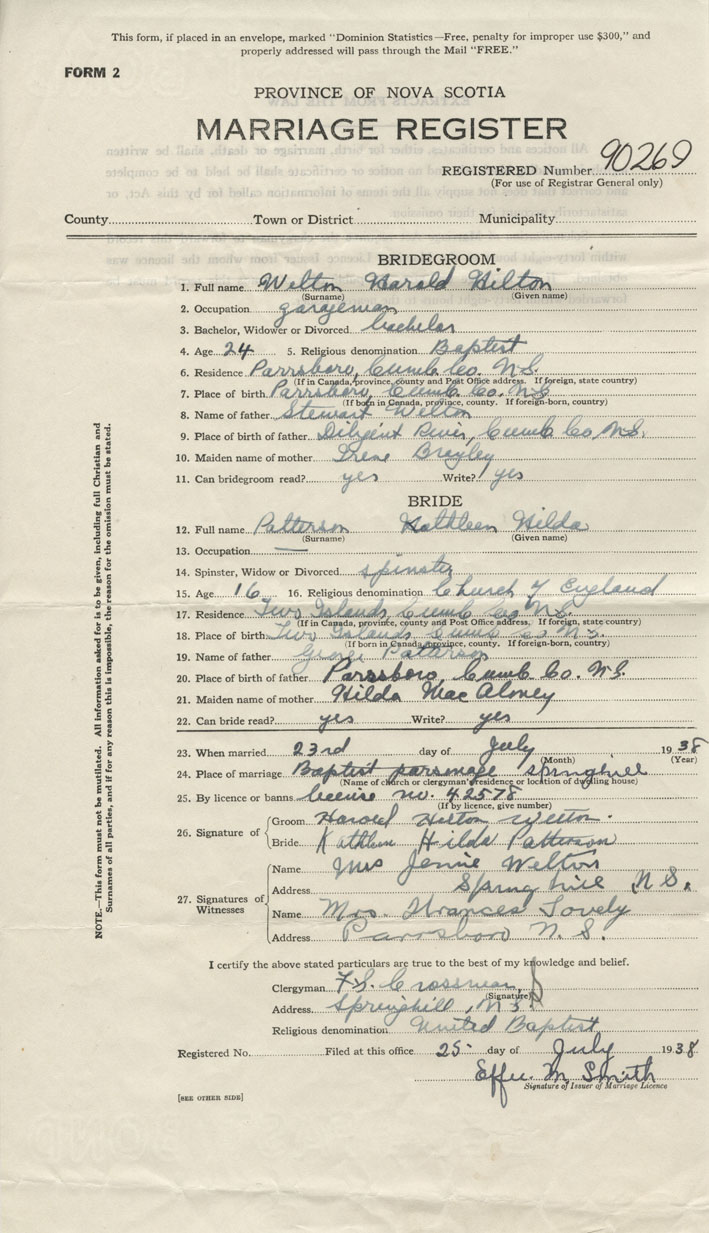 This form, if placed in an envelope, marked "Dominion Statistics—Free, penalty for improper use $300," and
properly addressed will pass through the Mail "FREE."
FORM 2
PROVINCE OF NOVA SCOTIA
MARRIAGE REGISTER
REGISTERED Number 90269
(For use of Registrar General only)
County Town or District Municipality
BRIDEGROOM
1. Full name Welton Harold Hilton
(Surname) (Given name)
2. Occupation garageman
3. Bachelor, Widower or Divorced bachelor
4. Age 24 5. Religious denomination Baptist
6. Residence Parrsboro, Cumb. Co. N.S.
(If in Canada, province, county and Post Office address. If foreign, state country)
7. Place of birth Parrsboro, Cumb. Co. N.S.
(If born in Canada, province, county. If foreign-born, country)
8. Name of father Stewart Welton
9. Place of birth of father Diligent River, Cumb. Co, N.S.
10. Maiden name of mother Irene
11. Can bridegroom read? yes Write? yes
BRIDE
12. Full name Patterson Kathleen Hilda
(Surname) (Given name)
13. Occupation —
14. Spinster, Widow or Divorced spinster
15. Age 16 16. Religious denomination Church of England
17. Residence Two Islands Cumb Co N.S.
(If in Canada, province, county and Post Office address. If foreign, state country)
18. Place of birth Two Islands Cumb Co N.S.
(If born in Canada, province, county. If foreign-born, country)
19. Name of father George Patterson
20. Place of birth of father Parrsboro, Cumb. Co. N.S.
21. Maiden name of mother Hilda MacAloney
22. Can bride read? yes Write? yes
23. When married 23rd day of July 1938
(Month) (Year)
24. Place of marriage Baptist parsonage Springhill
(Name of church or clergyman's residence or location of dwelling house)
25. By licence or banns license no. 42578
(If by licence, give number)
26. Signature of Groom Harold Hilton Welton.
Bride Kathleen Hilda Patterson
27. Signatures of Witnesses Name Mrs Jennie Welton
Address Spring hill N.S.
Name Mrs. Frances Lovely
Address Parrsboro N.S.
I certify the above stated particulars are true to the best of my knowledge and belief.
Clergyman F.S. Crossman
(Signature)
Address Springhill, N.S.
Religious denomination United Baptist
Registered No. Filed at this office 25 day of July 1938
Effie M. Smith
Signature of Issuer of Marriage Licence
[SEE OTHER SIDE]
NOTE.—This form must not be mutilated. All information asked for is to be given, including full Christian and
Surnames of all parties, and if for any reason this is impossible, the reason for the omission must be stated.